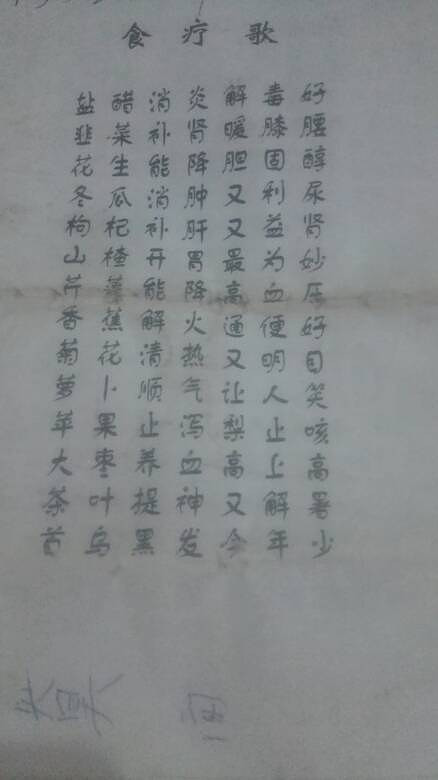 食疗歌
盐醋消炎解毒好
韭菜补肾暖膝腰
花生能降胆固醇
冬瓜消肿又利尿
枸杞补肝又益肾
山楂开胃最为妙
芹能降高血压
香蕉解火通便好
菊花清热又明目
萝卜顺气让人笑
苹果止泻梨止咳
大枣养血高上高
茶叶提神又解暑
首乌黑发今年少